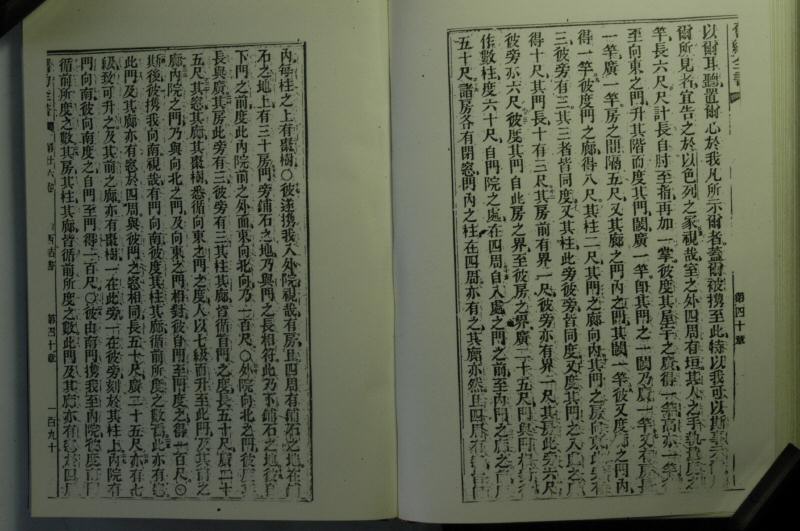 舊約全書
以爾耳聽置爾心於我凡所示爾者蓋爾被携至此特以我可以斯
爾所見者宜告之於以色列之家視哉室之外四周有垣其人之手執
竿長六尺尺計長自肘至指再加一掌彼度其屋宇之廣得一竿高亦一竿
至向東之門升其階而度其門閾廣一竿卽其門之一閾乃廣一竿又
一竿廣一竿房之間隔五尺又其廊之門內之門其閾一竿彼又度之門內
得一竿彼度門之廊得八尺其柱二尺其門之廊向內其門之房向東
三彼旁有三其三者皆同度又其柱此旁彼旁皆同度又度其門之入處之
得十尺其門長十有三尺其房前有界一尺彼旁亦有界一尺其房此旁六尺
彼旁亦六尺彼度其門自此房之界至彼房之界廣二十五尺門與門相
作數柱度六十尺自門院之處在四周自入處之門之前至內門之
五十尺諸房各有閉窓門內之柱在四周亦有之其廊亦然且四周有
第四十章
內每柱之上有棗樹〇彼遂携我入外院視哉有房且四周有鋪石之地在
石之地上有三十房門旁鋪石之地乃與門之長相符此乃下鋪石之地彼
下門之前度此內院前之外面東向北向乃一百尺〇外院向北之門彼
長與廣其房此旁有三彼旁有三其柱其廊皆循首門之度長五十尺廣二十
五尺其窓其廊其棗樹悉循向東之門之度人以七級而升至此門及其首之
廊內院之門乃與向北之門及向東之門相對彼自門至門度之得一百尺〇
斯後彼携我向南視哉有門向南彼度其柱其廊循前所度之數
此門及其廊亦有窓於四周與彼門之窓相同長五十尺廣二十五尺亦有七
級致可升之及其前之廊亦有棗樹一在此旁一在彼旁刻於其柱上內院有
門向南彼向南度之自門至門得一百尺〇彼由南門携我至內院
循前所度之數其房其柱其廊皆循前所度之數此門及其廊亦有
舊約全書
第廿六卷
西書
第四十章
一百九十